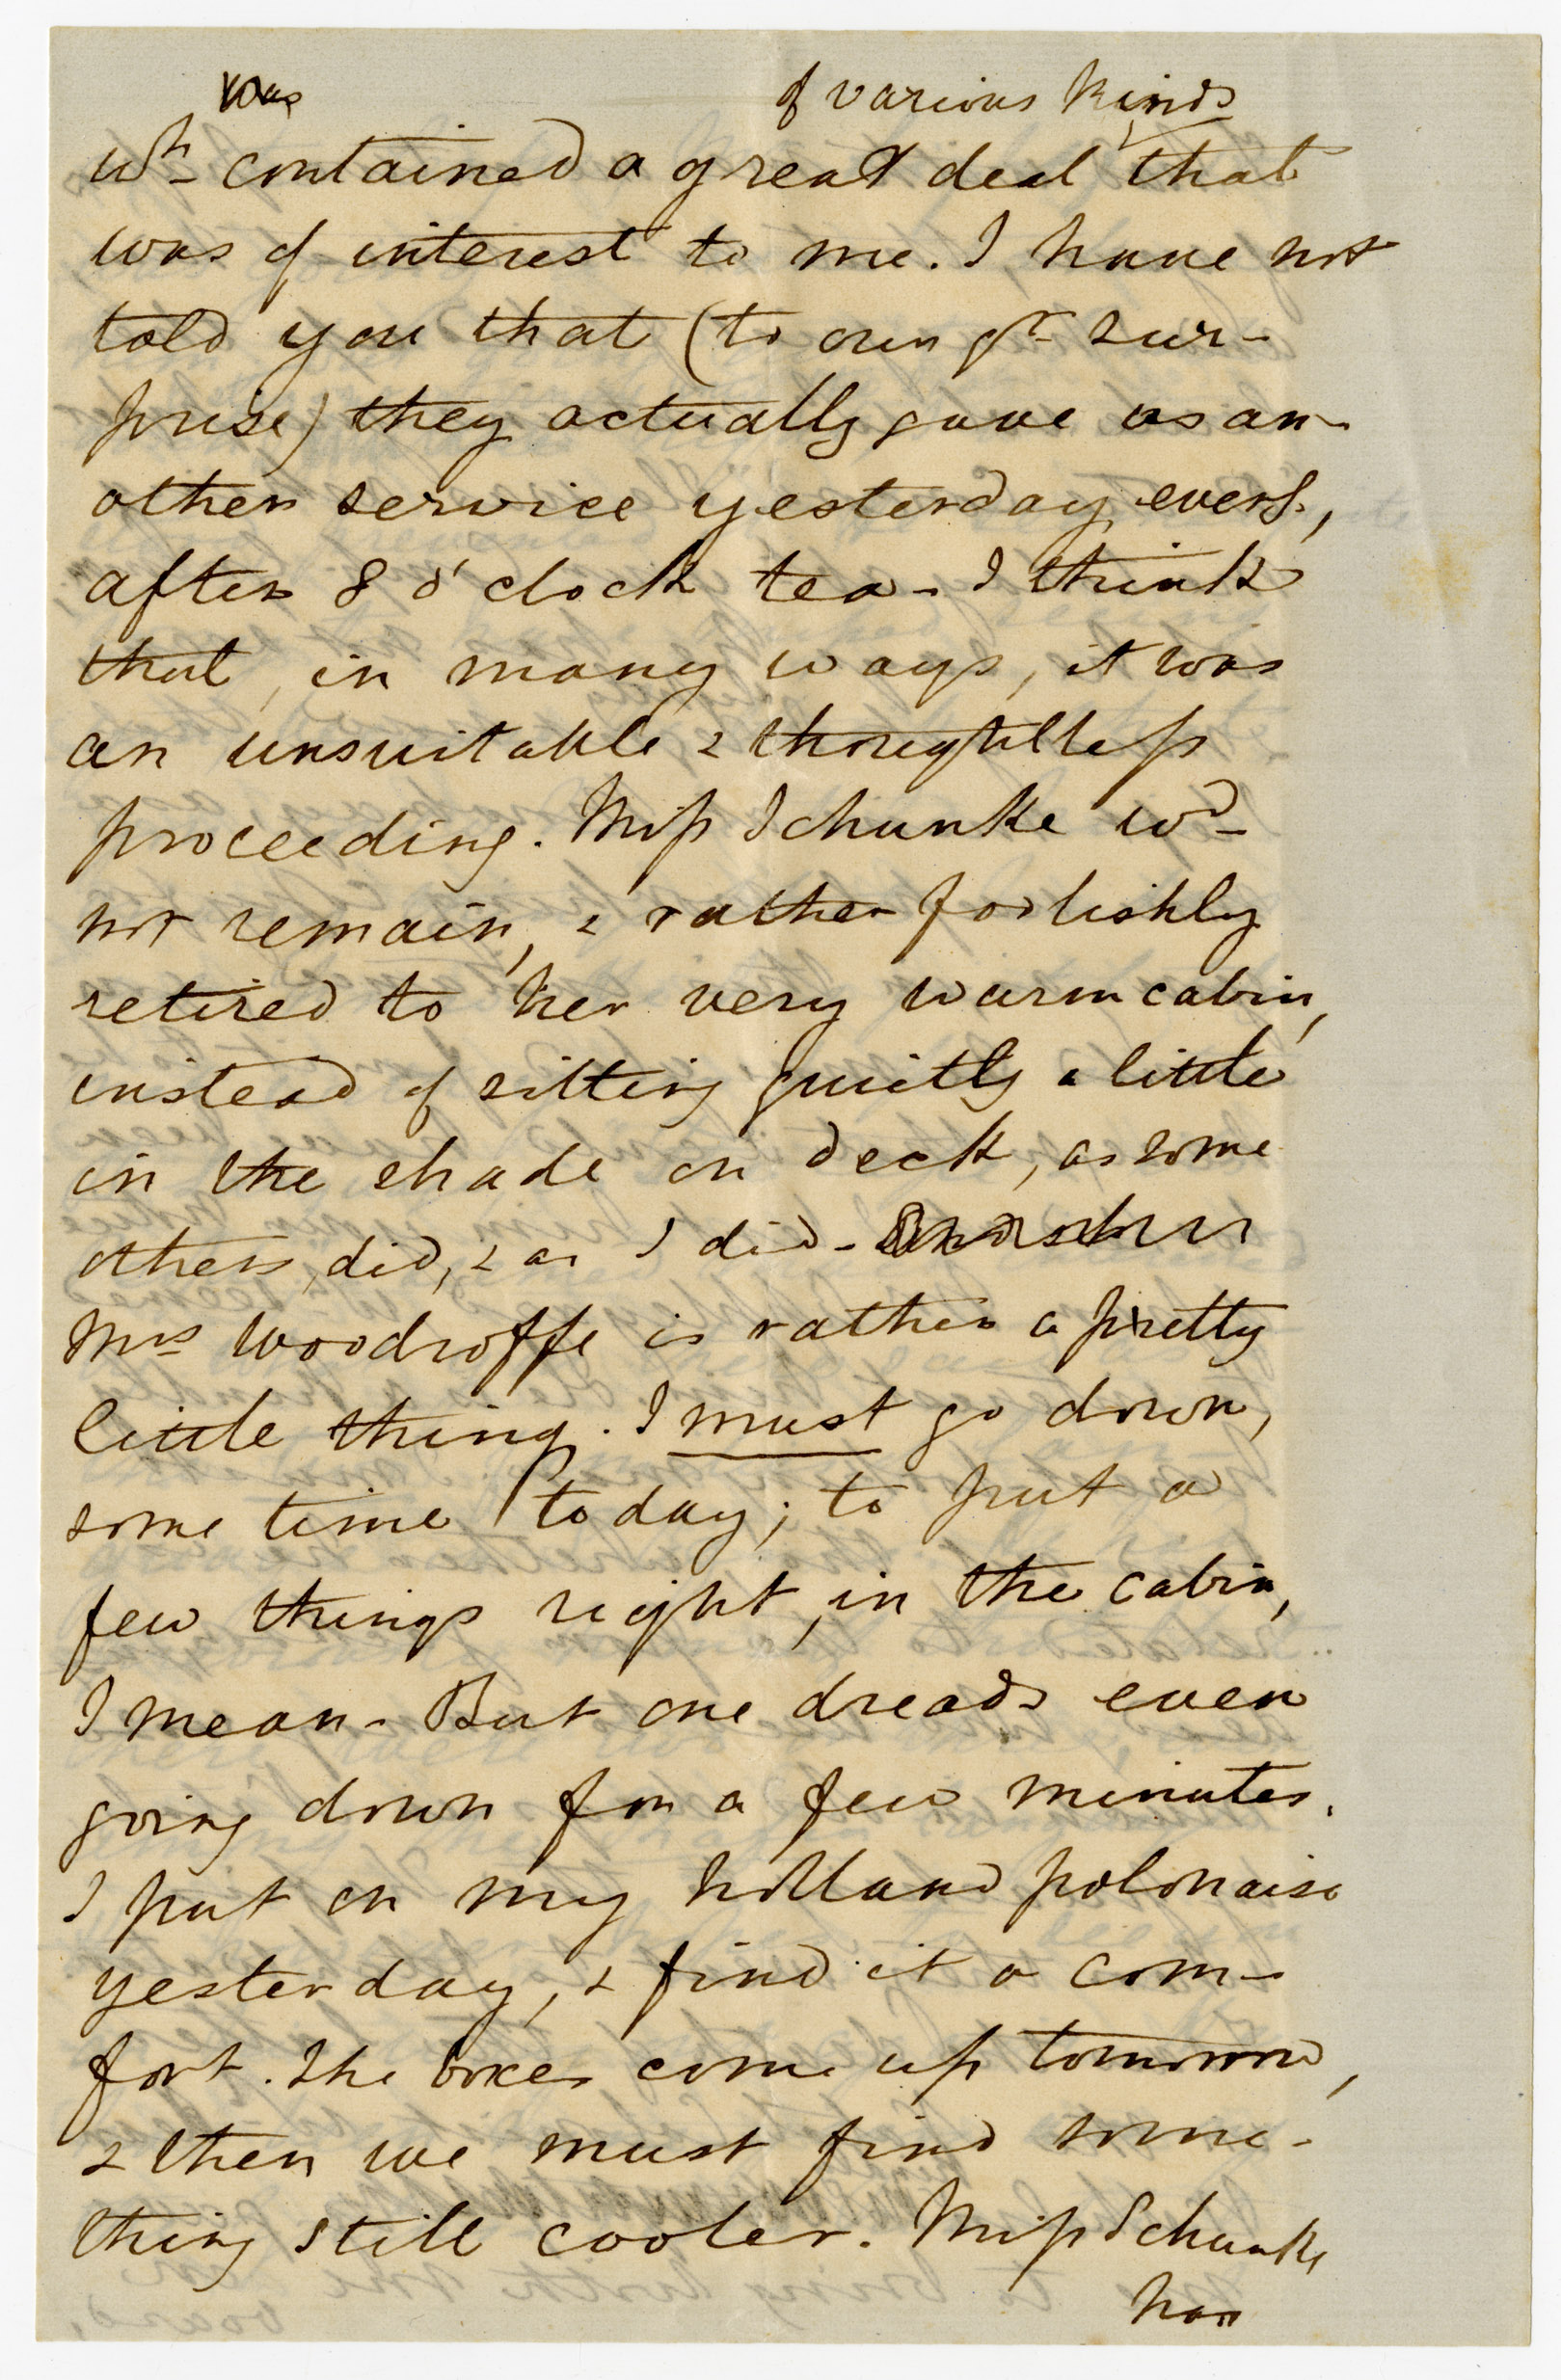 was of various kinds
wh contained a great deal that
was of interest to me. I have not
told you that (to our gt sur-
prise) they actually gave us an-
other service yesterday eveng.,
after 8 o'clock tea - I think
that, in many ways, it was
an unsuitable & thoughtless
proceeding. Miss Schunke wd
not remain, & rather foolishly
retired to her very warm cabin,
instead of sitting quietly a little
in the shade on deck, as some
others did, & as I did -
Mrs Woodroffe is rather a pretty
little thing. I must go down,
some time today; to put a
few things right, in the cabin,
I mean - But one dreads even
going down for a few minutes.
I put on my holland polonaise
yesterday, & find it a com-
fort. The boxes come up tomorrow,
& then we must find some-
thing still cooler. Miss Schunke
has